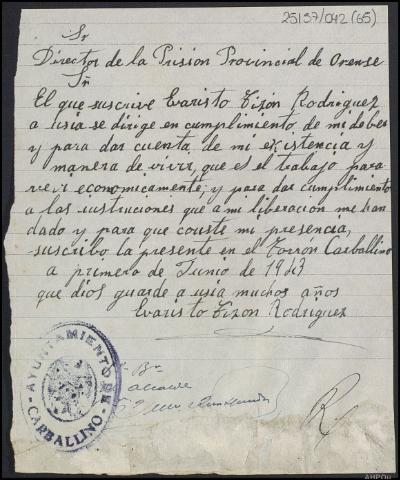 25157/042 (65)
Sr
Director de la Prision Provincial de Orense
Sr
El que suscrive Evaristo Tizón Rodriguez
a usia se dirige en cumplimiento, de mi deber
y para dar cuenta, de mi existencia y
manera de vivir, que es el trabajo para
vivir economicamente; y para dar cumplimiento
a las instruciones que a mi liberación me han
dado y para que conste mi presencia,
suscribo la presente en el Torrón Carballino
a primero de Junio de 1943
que dios guarde a usia muchos años
Evaristo Tizon Rodriguez
Vº Bº
Alcalde
AYUNTAMIENTO DE CARBALLINO
R
AHPOu